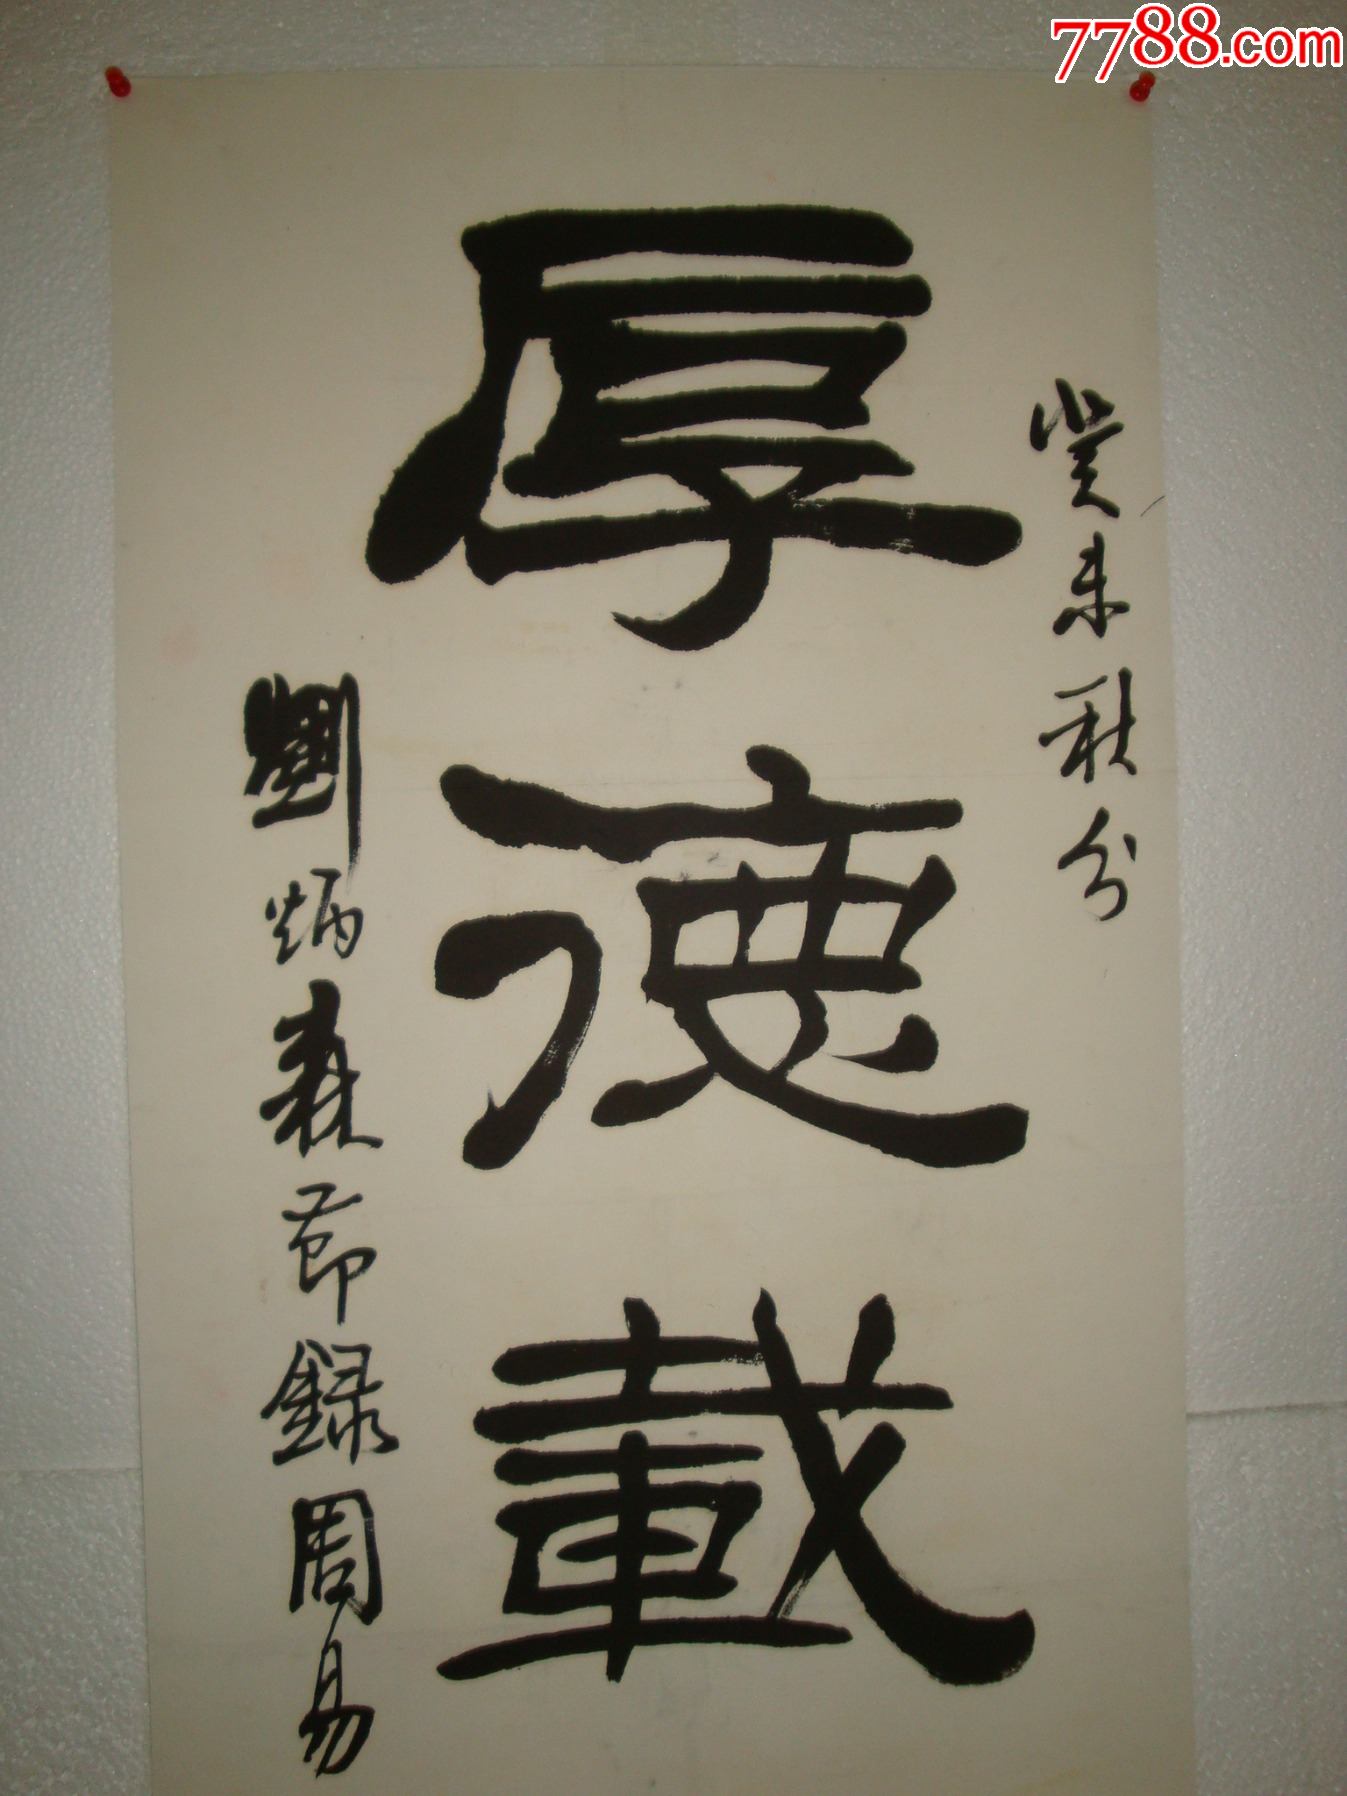 7788.com
癸未秋分
厚德載
劉炳森節録周易